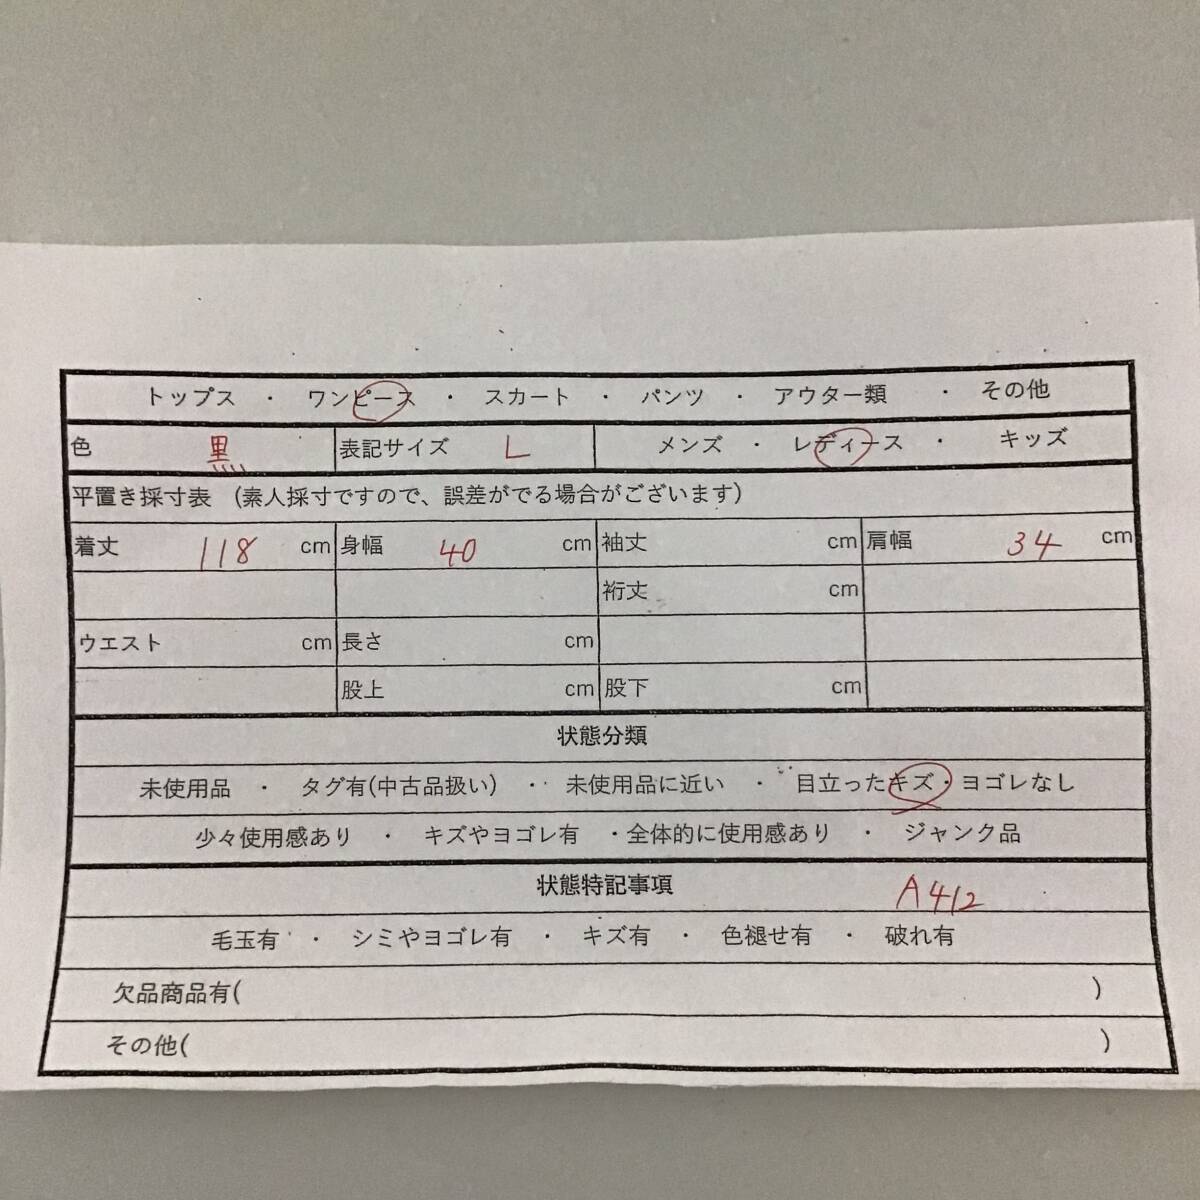 トップス ・ ワンピース ・ スカート ・ パンツ ・ アウター類 ・ その他
色 黒 表記サイズ L メンズ ・ レディース ・ キッズ
平置き採寸表 (素人採寸ですので、誤差がでる場合がございます)
着丈 118 cm 身幅 40 cm 袖丈 cm 肩幅 34 cm
裄丈 cm
ウエスト cm 長さ cm
股上 cm 股下 cm
状態分類
未使用品 ・ タグ有(中古品扱い) ・ 未使用品に近い ・ 目立ったキズ・ヨゴレなし
少々使用感あり ・ キズやヨゴレ有 ・全体的に使用感あり ・ ジャンク品
状態特記事項 A412
毛玉有 ・ シミやヨゴレ有 ・ キズ有 ・ 色褪せ有 ・ 破れ有
欠品商品有( )
その他( )